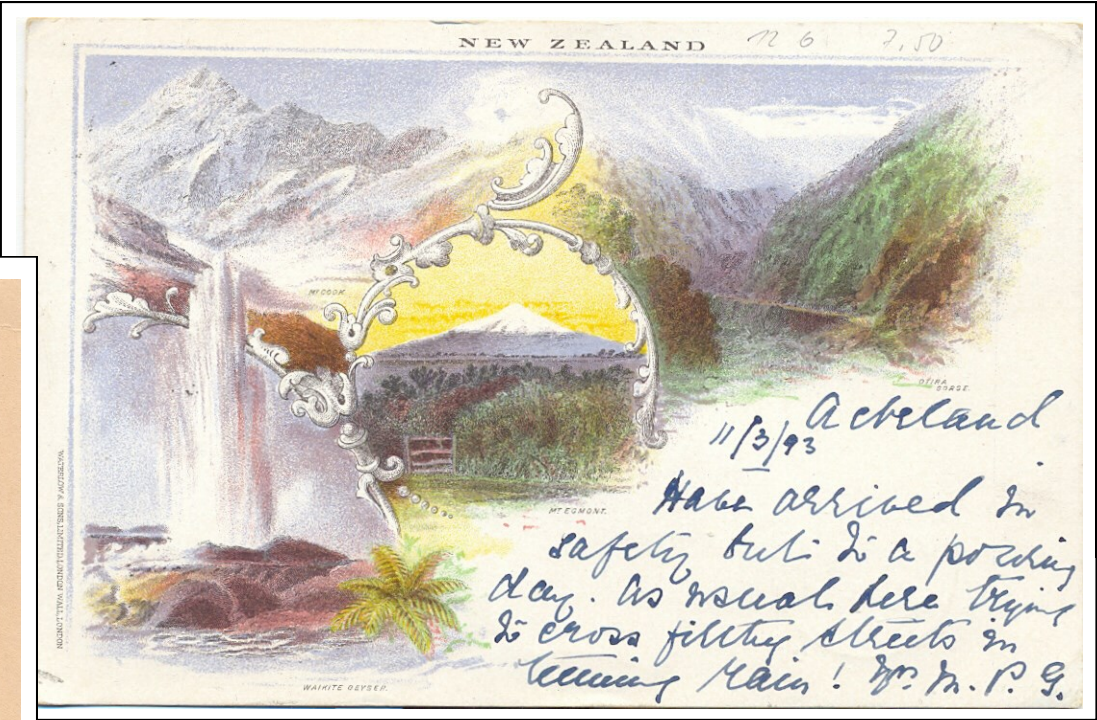 NEW ZEALAND
7.50
MT COOK.
OTIRA
GORGE.
MT EGMONT.
WAIKITE GEYSER.
WATERLOW & SONS, LIMITED, LONDON WALL, LONDON
11/3/93
Have arrived in
safety but in a pouring
day. As usual here trying
to cross filthy streets in
teeming rain! M. P. G.